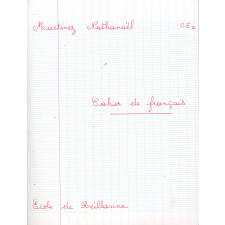 Martinez Nathanaël CE2
Cahier de français
École de Reillanne